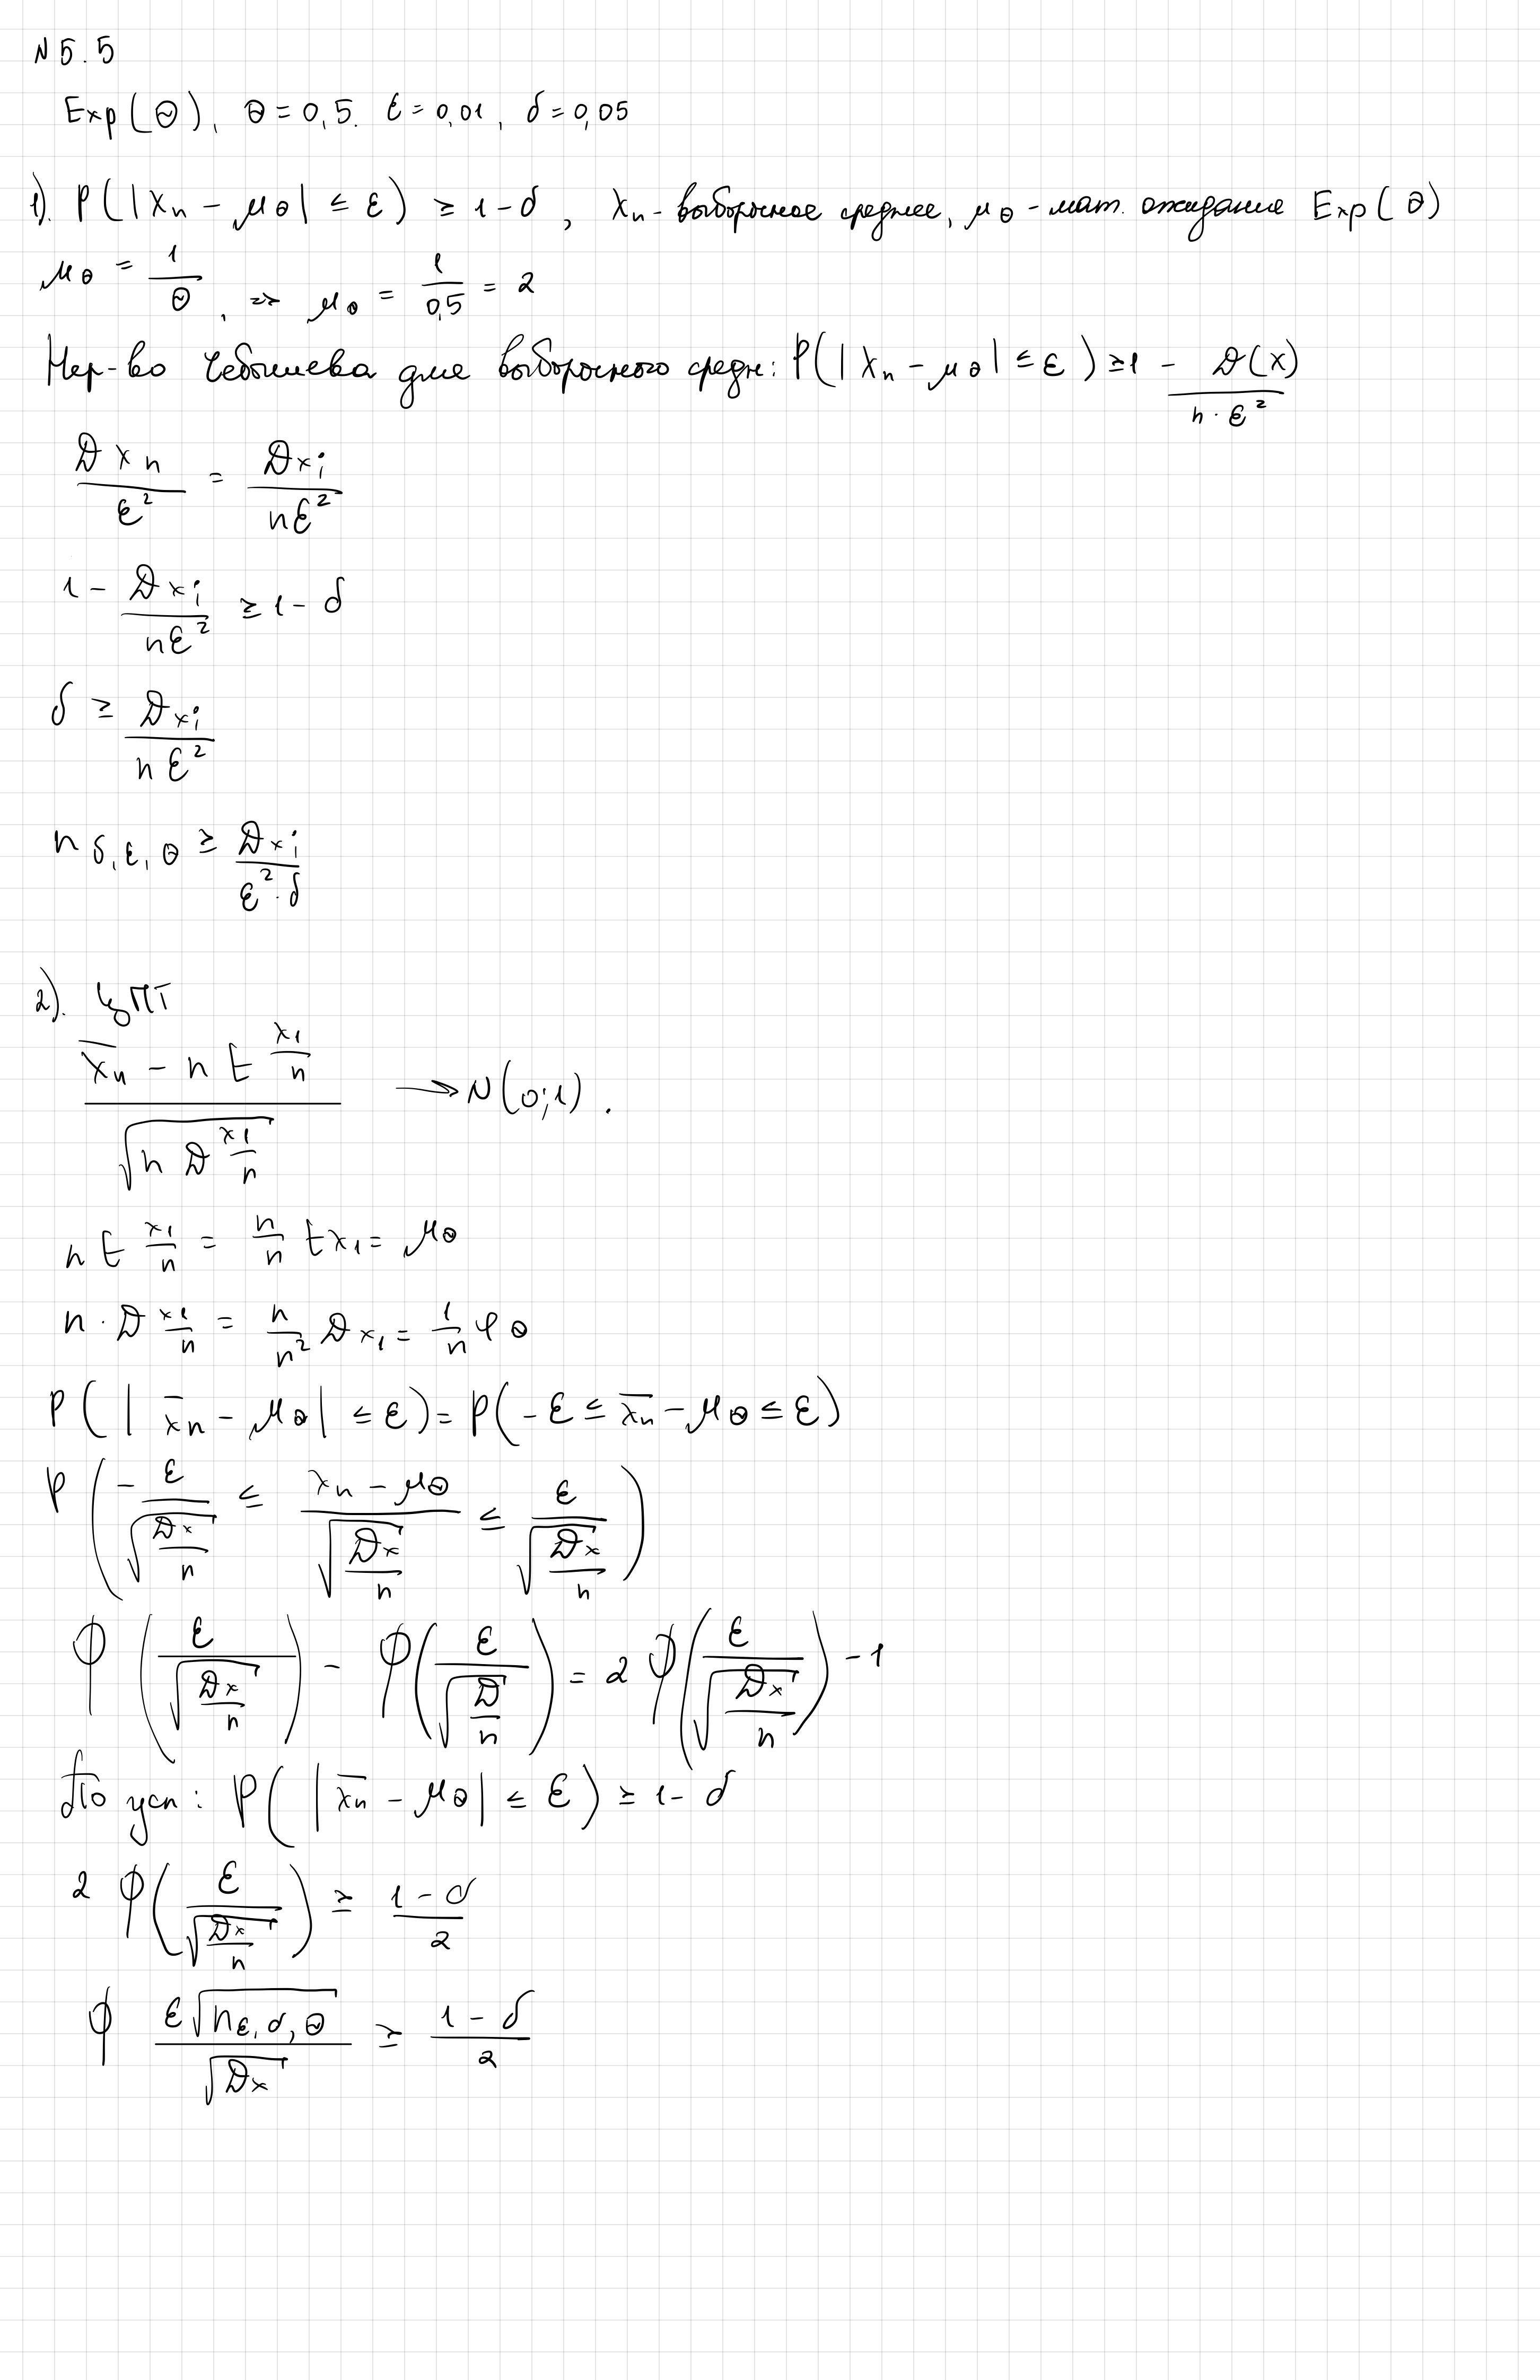 N 5.5
Exp(Θ), Θ = 0,5. ε = 0,01, δ = 0,05
1). P(|Xn - μθ| ≤ ε) ≥ 1-δ, Xn - выборочное среднее, μθ - мат. ожидание Exp(θ)
μθ = 1/Θ, => μθ = 1/0,5 = 2
Нер-во Чебышева для выборочного средн: P(|Xn - μθ| ≤ ε) ≥ 1 - D(X)/(n·ε²)
DXn/ε² = Dxi/(nε²)
1 - Dxi/(nε²) ≥ 1 - δ
δ ≥ Dxi/(nε²)
n δ,ε,Θ ≥ Dxi/(ε²·δ)
2). ЦПТ
(X̄n - n E x1/n)/√(n D x1/n) → N(0;1).
n E x1/n = n/n Ex1 = μΘ
n · D x1/n = n/n² Dx1 = 1/n φΘ
P(|x̄n - μΘ| ≤ ε) = P(-ε ≤ x̄n - μΘ ≤ ε)
P(-ε/√(Dx/n) ≤ (xn - μΘ)/√(Dx/n) ≤ ε/√(Dx/n))
Φ(ε/√(Dx/n)) - Φ(ε/√(D/n)) = 2Φ(ε/√(Dx/n)) - 1
По усл: P(|x̄n - μΘ| ≤ ε) ≥ 1 - δ
2 Φ(ε/√(Dx/n)) ≥ (1-δ)/2
Φ ε√(nε,δ,Θ)/√(Dx) ≥ (1-δ)/2